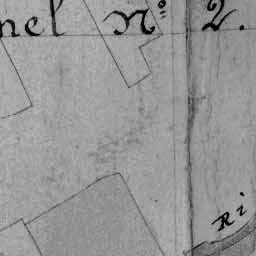 nel No: 2.
Ri